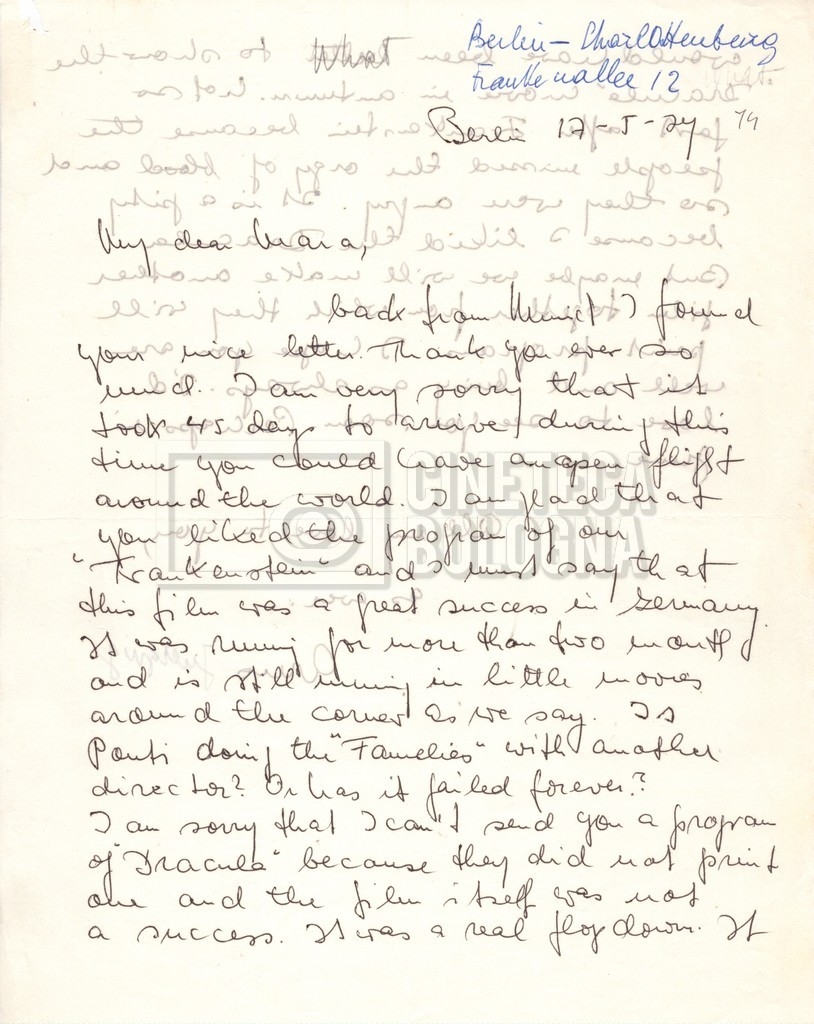 Berlin – Charlottenburg
Frankenallee 12
Berlin 17-5-74
74
My dear Mara,
back from Munich I found
your nice letter. Thank you ever so
much. I am very sorry that it
took 45 days to arrive, during this
time you could have an open flight
around the world. I am glad that
you liked the program of our
"Frankenstein" and I must say that
this film was a great success in Germany.
It was running for more than two months
and is still running in little movies
around the corner as we say. Is
Ponti doing the "Famelies" with another
director? Or has it failed forever?
I am sorry that I can't send you a program
of "Dracula" because they did not print
one and the film itself was not
a success. It was a real flop down. It
CINETECA
BOLOGNA